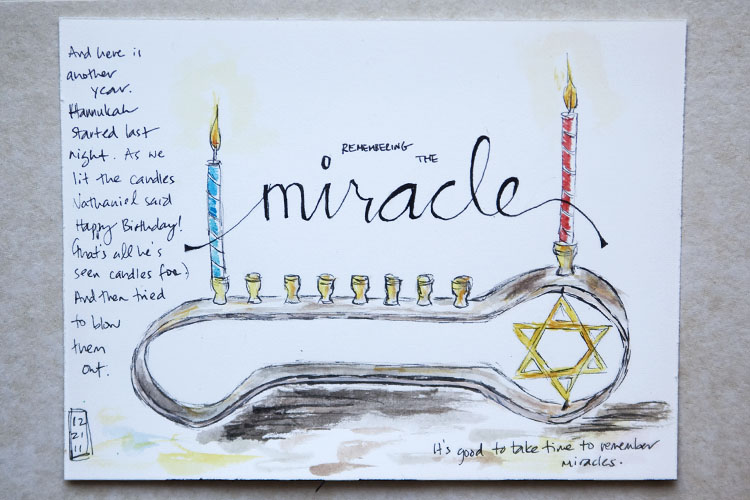 And here is
another
year.
Hannukah
started last
night. As we
lit the candles
Nathaniel said
Happy Birthday!
(that's all he's
seen candles for)
And then tried
to blow
them
out.
12
21
11
REMEMBERING
THE
miracle
It's good to take time to remember
miracles.